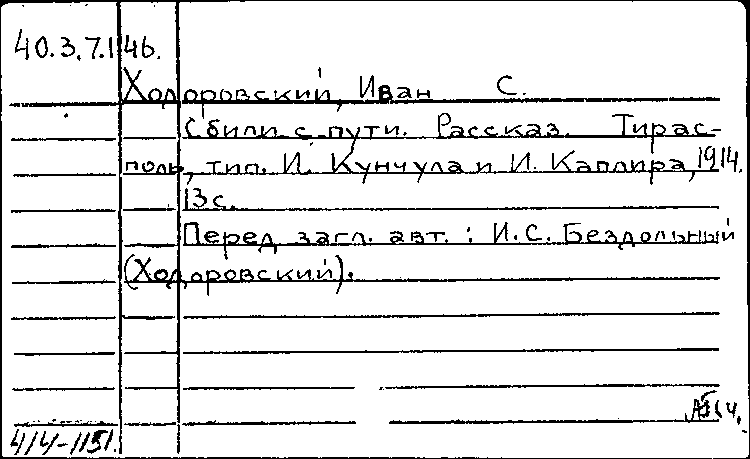 40.3.7.146.
Ходоровский, Иван С.
Сбили с пути. Рассказ. Тирас-
поль, тип. И. Кунчула и И. Каплира, 1914.
13 с.
Перед загл. авт.: И.С. Бездольный
(Ходоровский).
414-1151.